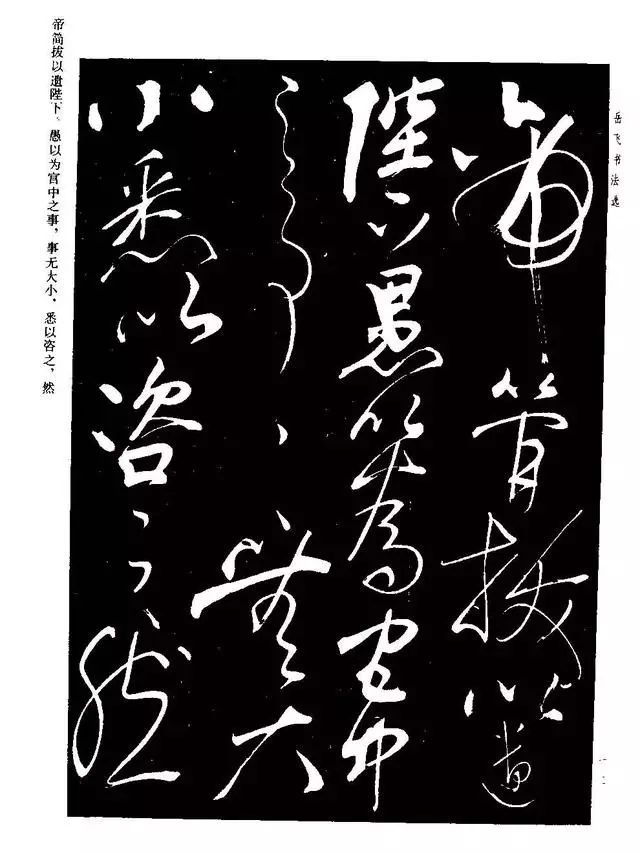 岳飞书法选
帝簡拔以遺
陛下愚以為宫中
之事々無大
小悉以咨之然
帝简拔以遗陛下、愚以为宫中之事，事无大小，悉以咨之，然